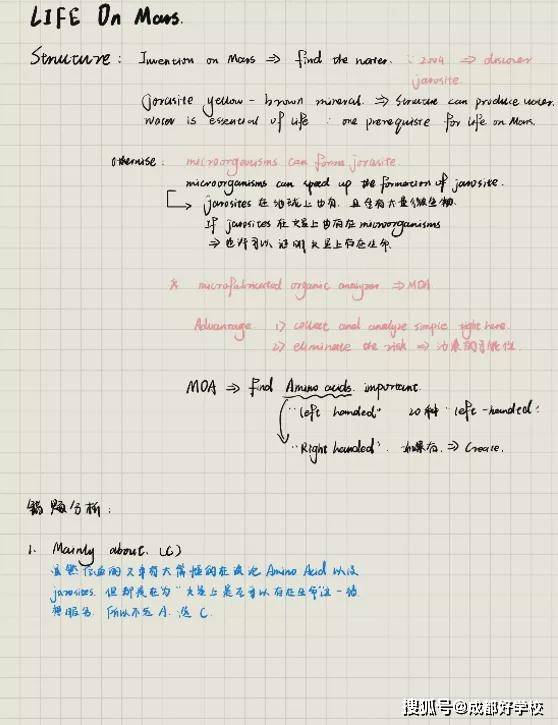 LIFE On Mars.
Structure: Invention on Mars ⇒ find the water. : 2004 ⇒ discover
jarosite.
jorasite yellow-brown mineral. ⇒ Structure can produce water.
Water is essential of life : one prerequisite for life on Mars.
otherwise: microorganisms can form jorasite.
microorganisms can speed up the formation of jarosite.
jarosites 在地球上也有, 且含有大量微生物.
If jarosites 在火星上也有存在 microorganisms
⇒ 也许可以证明火星上存在生命.
* microfabricated organic analyzer ⇒ MOA
Advantage 1) collect and analyze simple right here.
2) eliminate the risk ⇒ 污染的可能性.
MOA ⇒ find Amino acids. important.
"left handed" 20种 left-handed:
"Right handed". 如果有. ⇒ Create.
错题分析:
1. Mainly about. (C)
虽然后面的文章有大篇幅的在谈论 Amino Acid 以及
jarosites. 但都是在为"火星上是否可以存在生命"这一话
题服务. 所以不选 A. 选 C.
搜狐号@成都好学校